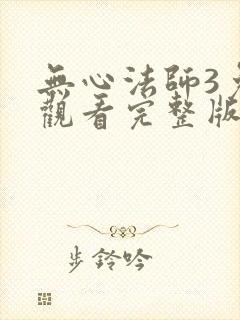 無心法師3
觀看完整版
步鈴吟